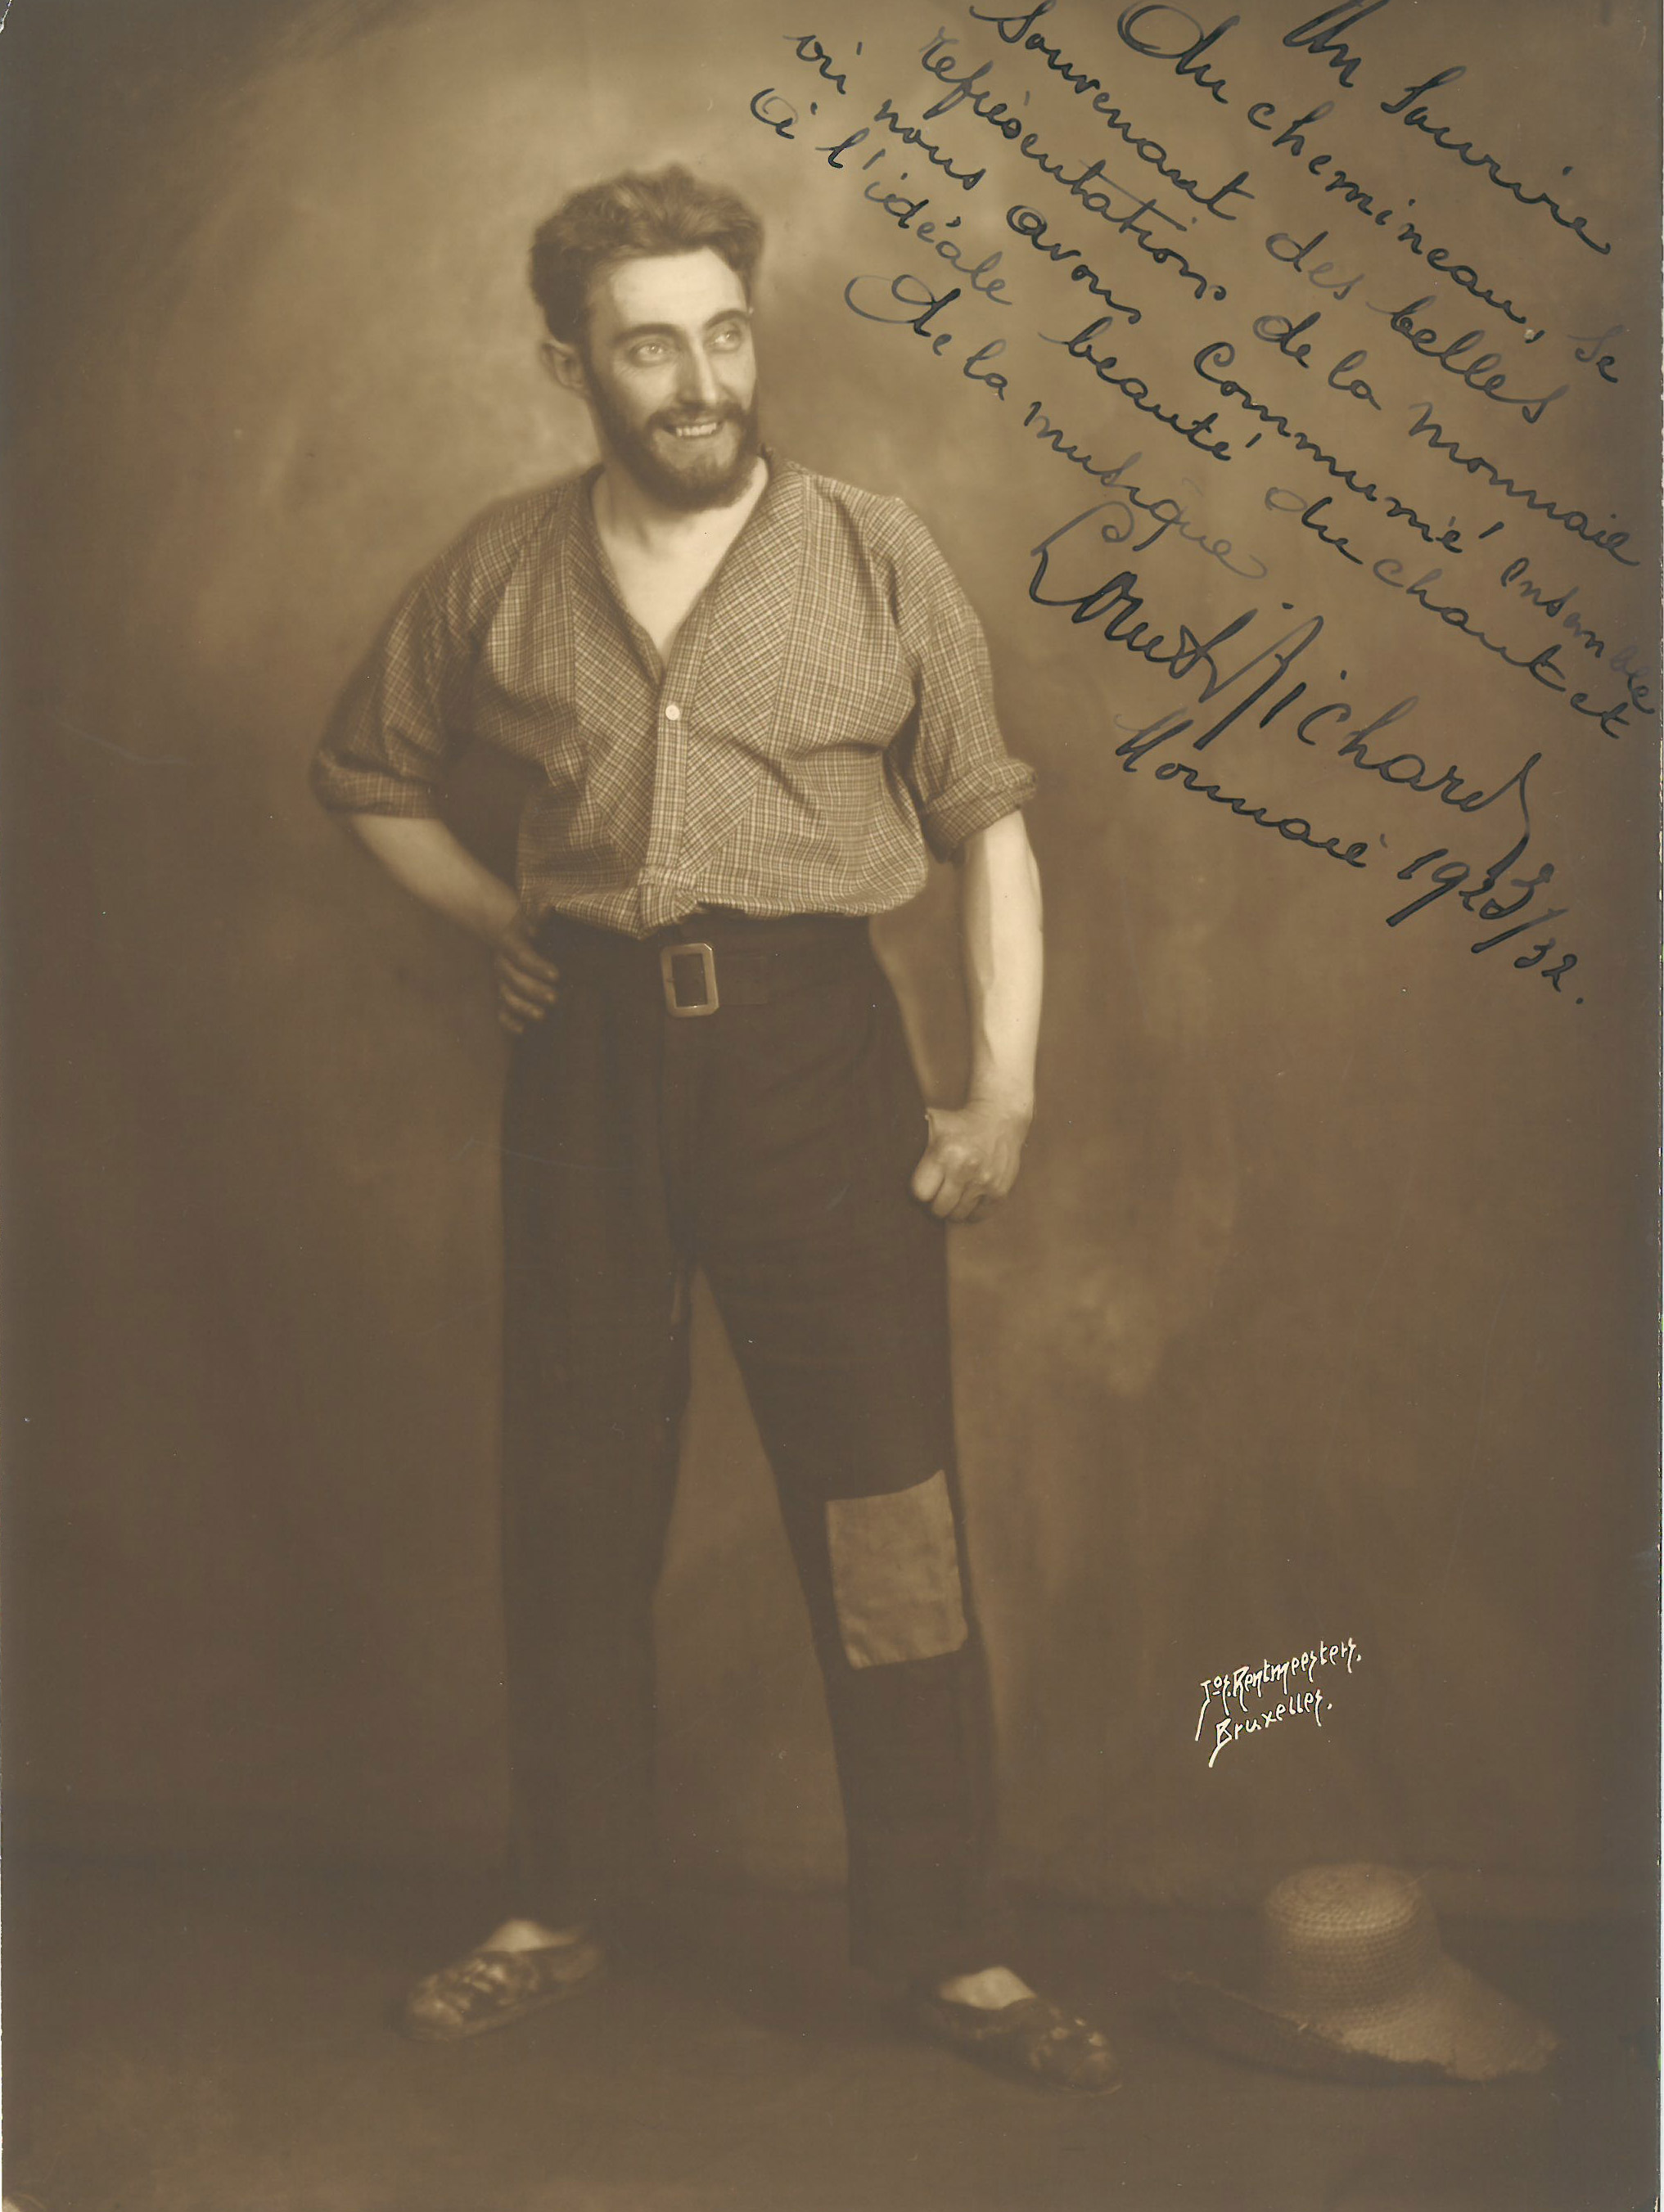 Un sourire
du chemineau, se
souvenant des belles
représentations de la monnaie
où nous avons communié ensemble
à l'idéale beauté du chant et
de la musique
Richard
Monnaie /32.
Jos. Rentmeesters.
Bruxelles.